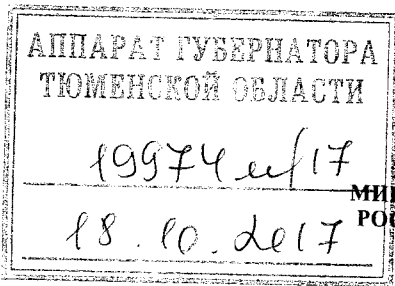 АППАРАТ ГУБЕРНАТОРА
ТЮМЕНСКОЙ ОБЛАСТИ
19974и/17
МИ
18.10.2017
РОС